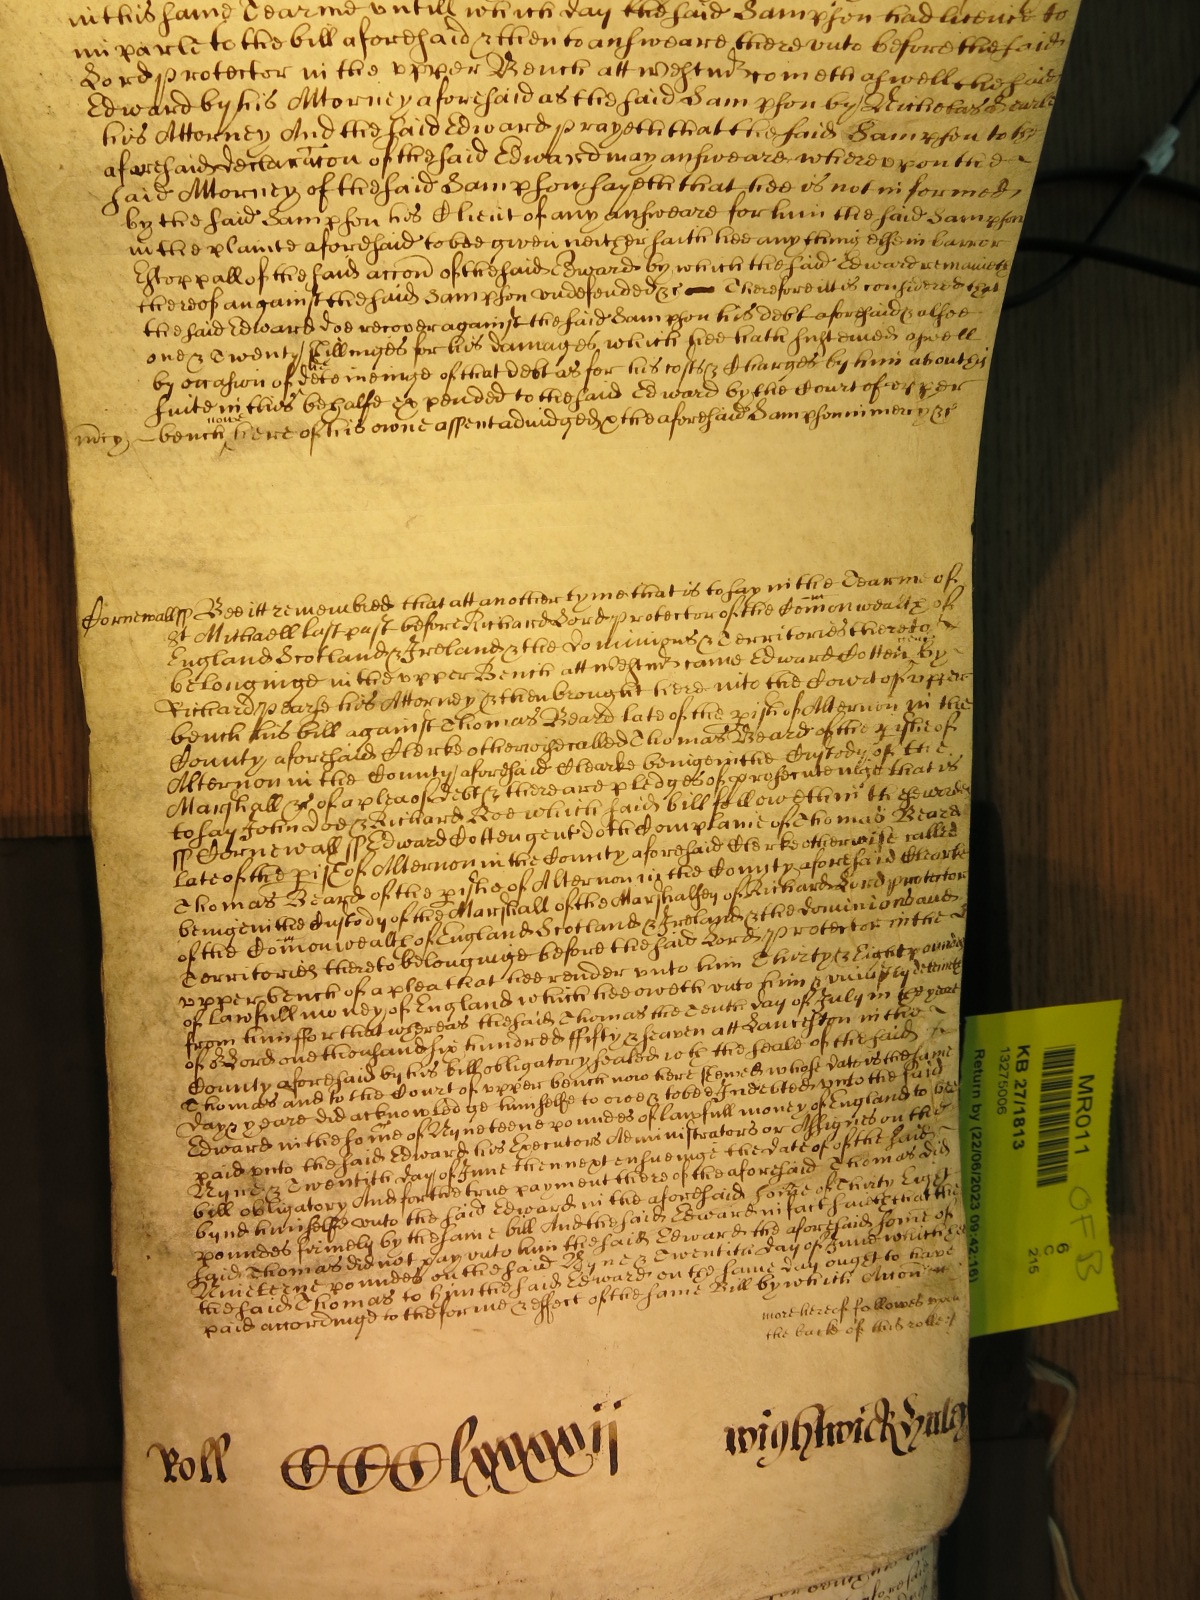 in this same Tearme untill which day the said Sampson had licence to
imparle to the bill aforesaid & then to answeare there unto before the said
Lord Protector in the upper Bench att Westmr cometh aswell the said
Edward by his Attorney aforesaid as the said Sampson by Nicholas Searle
his Attorney And the said Edward prayeth that the said Sampson to the
aforesaid declaration of the said Edward may answeare whereupon the
said Attorney of the said Sampson sayeth that hee is not informed
by the said Sampson his Client of any answeare for him the said Sampson
in the plainte aforesaid to bee given neither saith hee any thing else in barr or
Estoppall of the said accon of the said Edward by which the said Edward remaineth
thereof against the said Sampson undefended &c Therefore it is considered that
the said Edward doe recover against the said Sampson his debt aforesaid & alsoe
one & Twenty shillinges for his damages which hee hath susteined aswell
by occasion of the deteineinge of that debt as for his costs & Charges by him about his
suite in this behalfe expended to the said Edward by the Court of upper
mcy bench nowe here of his owne assent adiudged & the aforesaid Sampson in mercy &c
Cornewall ss Bee itt remembred that att another tyme that is to say in the Tearme of
St Michaell last past before Richard Lord Protector of the Comon wealth of
England Scotland & Ireland & the dominions & Territories thereto
belonginge in the upper Bench att Westmr came Edward Cotten gent by
Richard Pearse his Attorney & then brought here into the Court of upper
bench his bill against Thomas Beard late of the pish of Alternon in the
County aforesaid Clerke otherwise called Thomas Beard of the pishe of
Alternon in the County aforesaid Clearke beinge in the Custody of the
Marshall &c of a plea of Debt & there are pledges of prosecuteinge that is
to say John Doe & Richard Roe which said bill followeth in these wordes
ss Cornewall ss Edward Cotten gent doth Complaine of Thomas Beard
late of the pish of Alternon in the County aforesaid Clerke otherwise called
Thomas Beard of the pishe of Alternon in the County aforesaid Clearke
beinge in the Custody of the Marshall of the Marshalsey of Richard Lord protector
of the Comonwealth of England Scotland & Ireland & the dominions and
Territories thereto belonginge before the said Lord Protector in the
upper bench of a plea that hee render unto him Thirty & Eight poundes
of lawfull money of England which hee oweth unto him & uniustly deteineth
from him ffor that whereas the said Thomas the Tenth day of July in the yeare
of or Lord one thousand six hundred ffifty & seaven att Lanceston in the
County aforesaid by his bill obligatory sealed with the seale of the said
Thomas and to the Court of upper bench now here shewed whose date is the same
day & yeare did acknowledge himselfe to owe & to bee Indebted unto the said
Edward in the some of Nyneteene poundes of lawfull money of England to be
paid unto the said Edward his Executors Administrators or Assignes on the
Nyne & Twentith day of June then next ensueinge the date of the said
bill obligatory And for the true payment thereof the aforesaid Thomas did
bynd himselfe unto the said Edward in the aforesaid some of Thirty Eight
poundes firmely by the same bill And the said Edward in fact saieth that the
said Thomas did not pay unto him the said Edward the aforesaid some of
Nineteene poundes on the said Nyne & Twentith day of June which
the said Thomas to him the said Edward on the same day ought to have
paid accordinge to the forme & effect of the same Bill by which Accon
more hereof followes upon
the backe of this rolle
Roll CCClxxxxij Wightwick
MR011 OF B
KB 27/1813
13275006
6
C
215
Return by (22/06/2023 09:42:16)